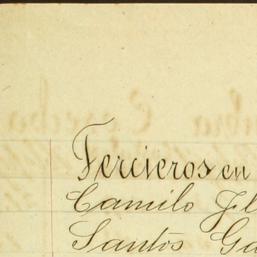 Tercieros en
Camilo
Santos Ga